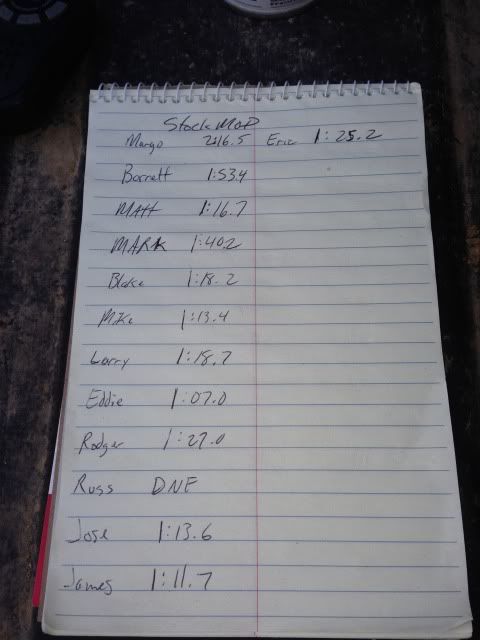 Stock MOD
Margo 2:16.5 Eric 1:25.2
Barnett 1:53.4
MAtt 1:16.7
MARK 1:40.2
Blake 1:18.2
Mike 1:13.4
Larry 1:18.7
Eddie 1:07.0
Rodger 1:27.0
Russ DNF
Jose 1:13.6
James 1:11.7